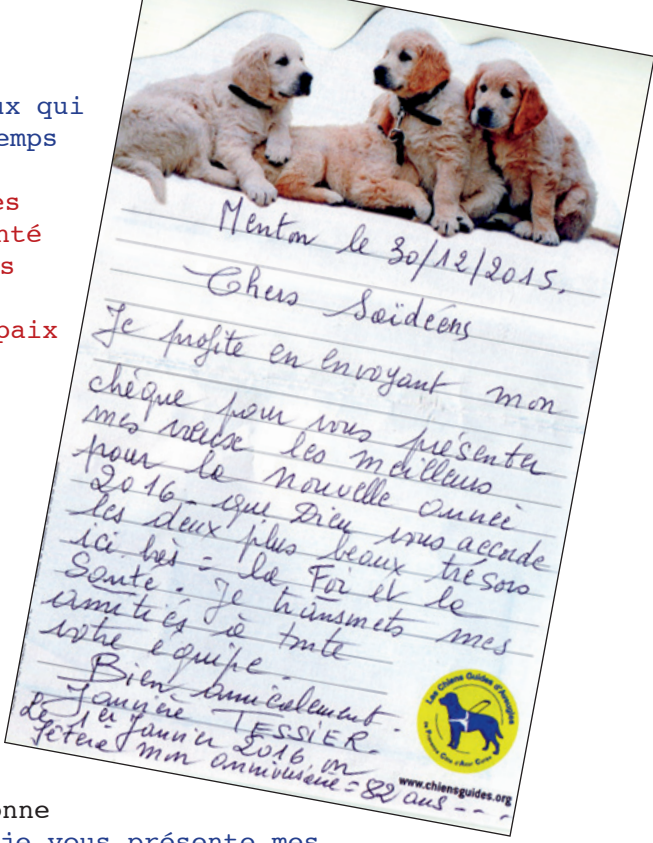 ux qui
emps
es
nté
s
paix
Menton le 30/12/2015.
Chers Saïdéens
Je profite en envoyant mon
chèque pour vous présenter
mes vœux les meilleurs
pour la nouvelle année
2016 - que Dieu vous accorde
les deux plus beaux trésors
ici bas = la Foi et la
Santé. Je transmets mes
amitiés à toute
votre équipe.
Bien amicalement.
TESSIER.
Le 1er Janvier 2016, on
fêtera mon anniversaire = 82 ans - - -
Les Chiens Guides d'Aveugles
www.chiensguides.org
onne
je vous présente mes